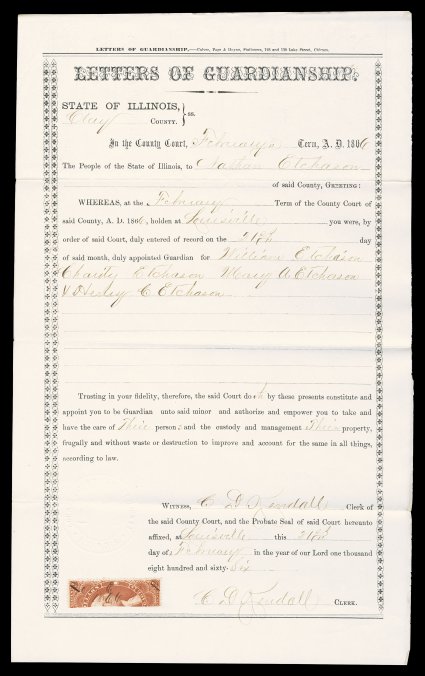 LETTERS OF GUARDIANSHIP.—Culver, Page & Hoyne, Stationers, 128 and 130 Lake Street, Chicago.
LETTERS OF GUARDIANSHIP.
STATE OF ILLINOIS, } ss.
Clay COUNTY.
In the County Court, February Term, A. D. 1866
The People of the State of Illinois, to Nathan Etchason
of said County, GREETING:
WHEREAS, at the February Term of the County Court of
said County, A. D. 1866, holden at Louisville you were, by
order of said Court, duly entered of record on the 21st day
of said month, duly appointed Guardian for William Etchason
Charity Etchason Mary A Etchason
& Henley C Etchason
Trusting in your fidelity, therefore, the said Court doth by these presents constitute and
appoint you to be Guardian unto said minor and authorize and empower you to take and
have the care of Their person: and the custody and management Their property,
frugally and without waste or destruction to improve and account for the same in all things,
according to law.
WITNESS, C D Kendall Clerk of
the said County Court, and the Probate Seal of said Court hereunto
affixed, at Louisville this 21st
day of February in the year of our Lord one thousand
eight hundred and sixty-Six
C D Kendall CLERK.